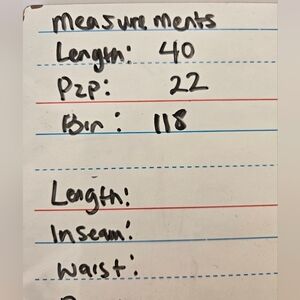 measurements
Length: 40
P2P: 22
Bin: 118
Length:
Inseam:
waist: